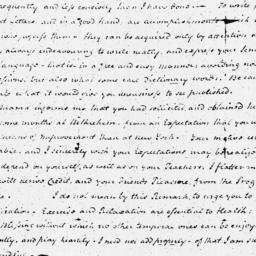 frequently, and less concisely, than I have done — To write
Letters, but in a good hand, are accomplishments which
wish, yourself them — they can be acquired only by attention
always endeavouring to write neatly, and express your sen
language — not in a free and easy manner, avoiding no
pressions, but also what some call Dictionary words. Be ca
what it would give you uneasiness to see published.
Mama informs me that you had solicited, and obtained he
some months at Bethlehem, from an Expectation that you w
means of Improvement than at New York. Your motives we
able, and I sincerely wish your Expectations may be realized
depend on yourself, as well as on your Teachers. I flatter m
will derive Credit, and your Friends Pleasure from the Prog
I do not mean by this Remark to urge you to
ication. Exercise and Relaxation are essential to Health;
Blessing without which no other temporal ones can be enjoy
ently, and play heartily. I need not add properly — of that I am su